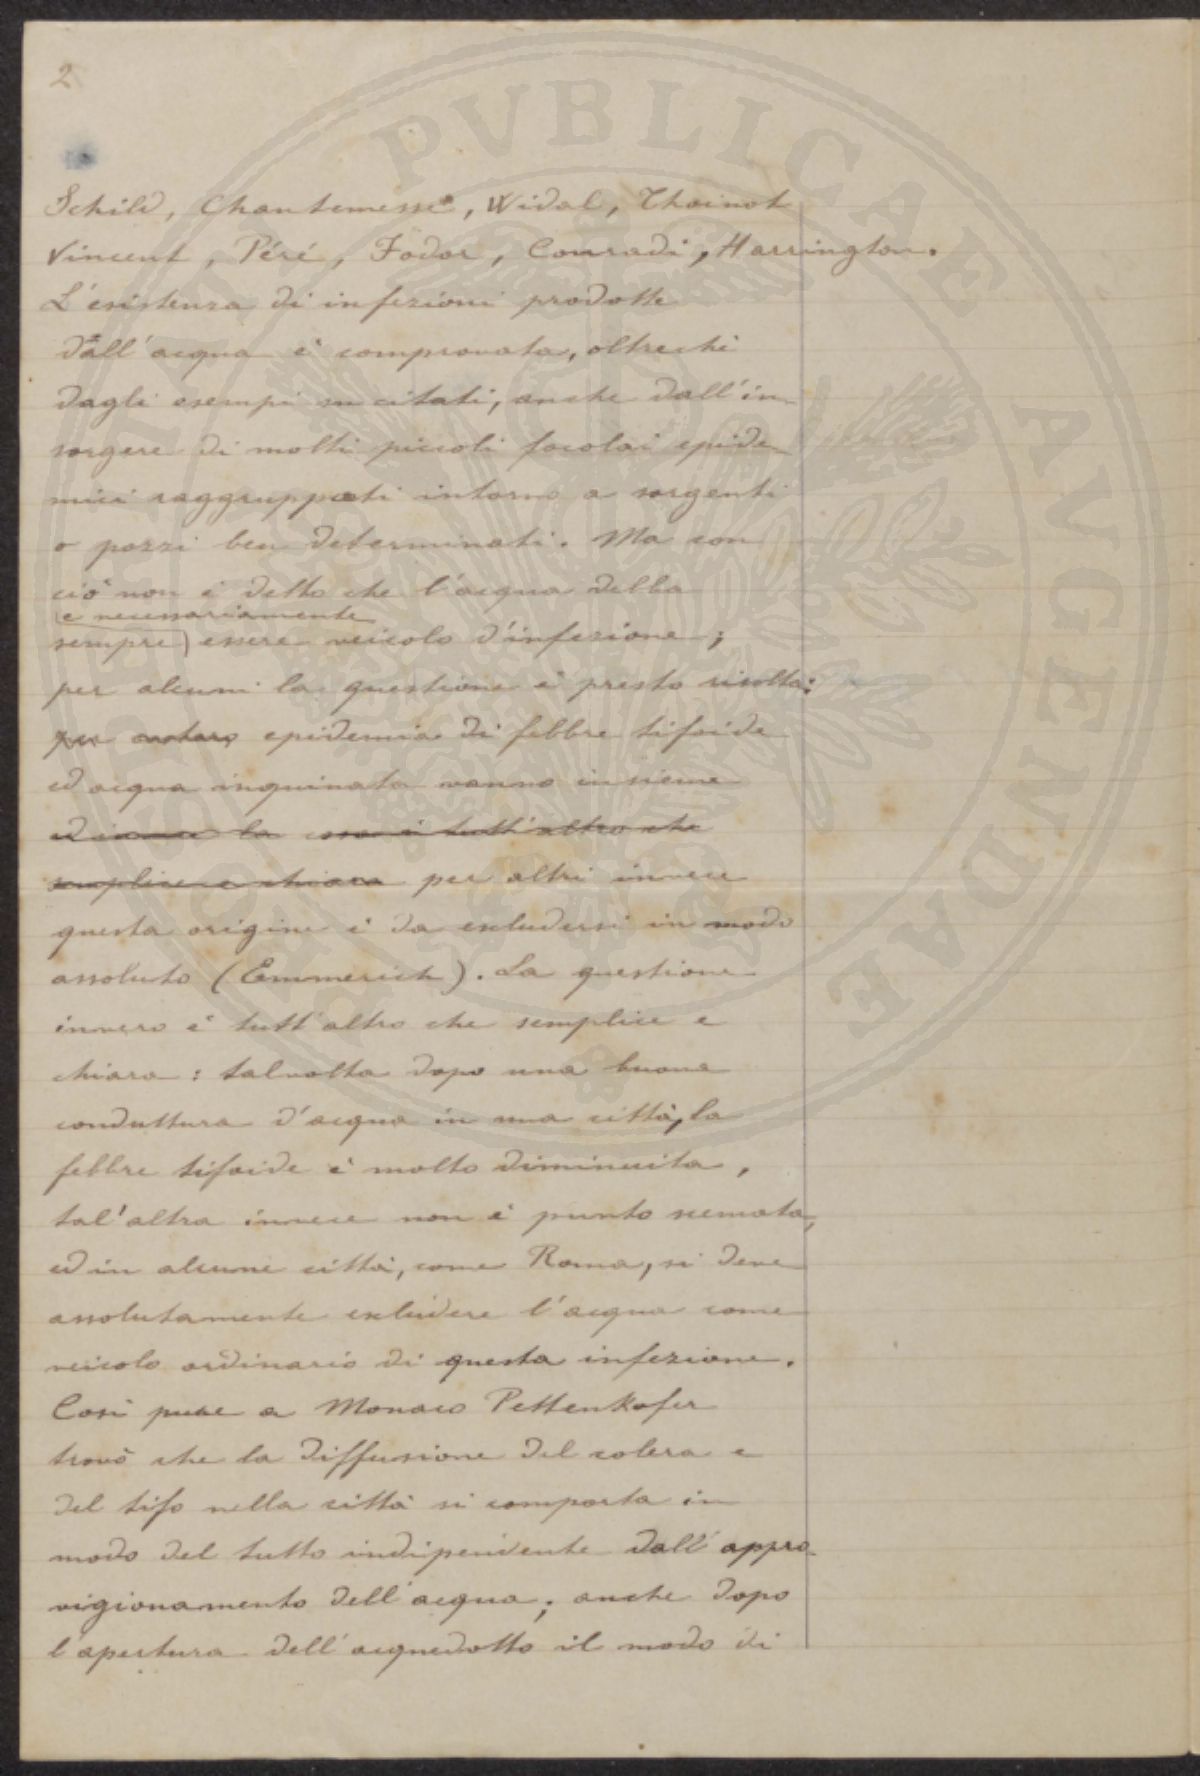 2
Schild, Chantemesse, Widal, Thoinot
Vincent, Péré, Fodor, Conradi, Harrington.
L'esistenza di infezioni prodotte
dall'acqua è comprovata, oltrechè
dagli esempi su citati, anche dall'in-
sorgere di molti piccoli focolai epide-
mici raggruppati intorno a sorgenti
o pozzi ben determinati. Ma con
ciò non è detto che l'acqua debba
e necessariamente
sempre) essere veicolo d'infezione;
per alcuni la questione è presto risolta:
per epidemia di febbre tifoide
ed acqua inquinata vanno insieme
ed invece la cosa è tutt'altro che
semplice e chiara per altri invece
questa origine è da escludersi in modo
assoluto (Emmerich). La questione
invero è tutt'altro che semplice e
chiara: talvolta dopo una buona
conduttura d'acqua in una città, la
febbre tifoide è molto diminuita,
tal'altra invece non è punto scemata,
ed in alcune città, come Roma, si deve
assolutamente escludere l'acqua come
veicolo ordinario di questa infezione.
Così pure a Monaco Pettenkofer
trovò che la diffusione del colera e
del tifo nella città si comporta in
modo del tutto indipendente dall'appro-
vigionamento dell'acqua; anche dopo
l'apertura dell'acquedotto il modo di
PUBLICAE AVGENDAE